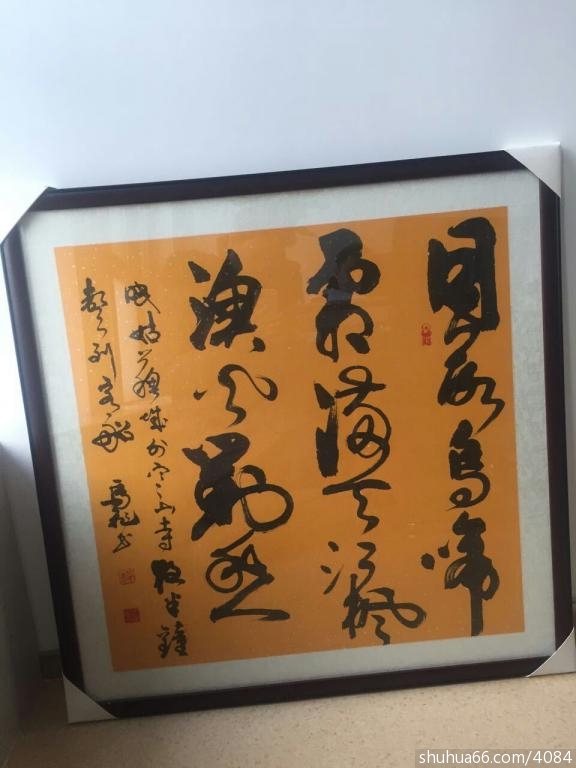 月落烏啼
霜滿天江楓
漁火對愁
眠姑蘇城外寒山寺夜半鐘
聲到客船 书
shuhua66.com/4084